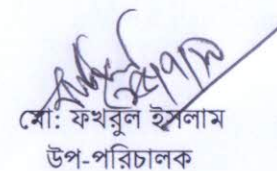 মো: ফখরুল ইসলাম
উপ-পরিচালক